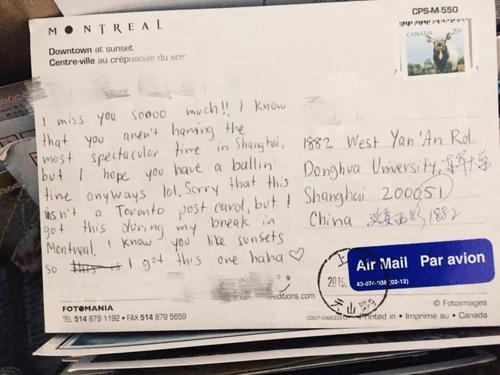 MONTREAL
Downtown at sunset
Centre-ville au crépuscule du soir
CPS-M-550
CANADA
I miss you soooo much!! I know
that you aren't having the
most spectacular time in Shanghai,
but I hope you have a ballin'
time anyways lol. Sorry that this
isn't a Toronto post card, but I
got this during my break in
Montreal. I know you like sunsets
so this is I got this one haha ♡
1882 West Yan'An Rd.
Donghua University, 东华大学
Shanghai 200051
China 延安西路1882
Air Mail Par avion
43-074-038 (02-12)
上
2016
天山路
FOTOMANIA
TEL 514 879 1192 • FAX 514 879 5659
editions.com
© Fotoimages
Printed in • Imprimé au • Canada